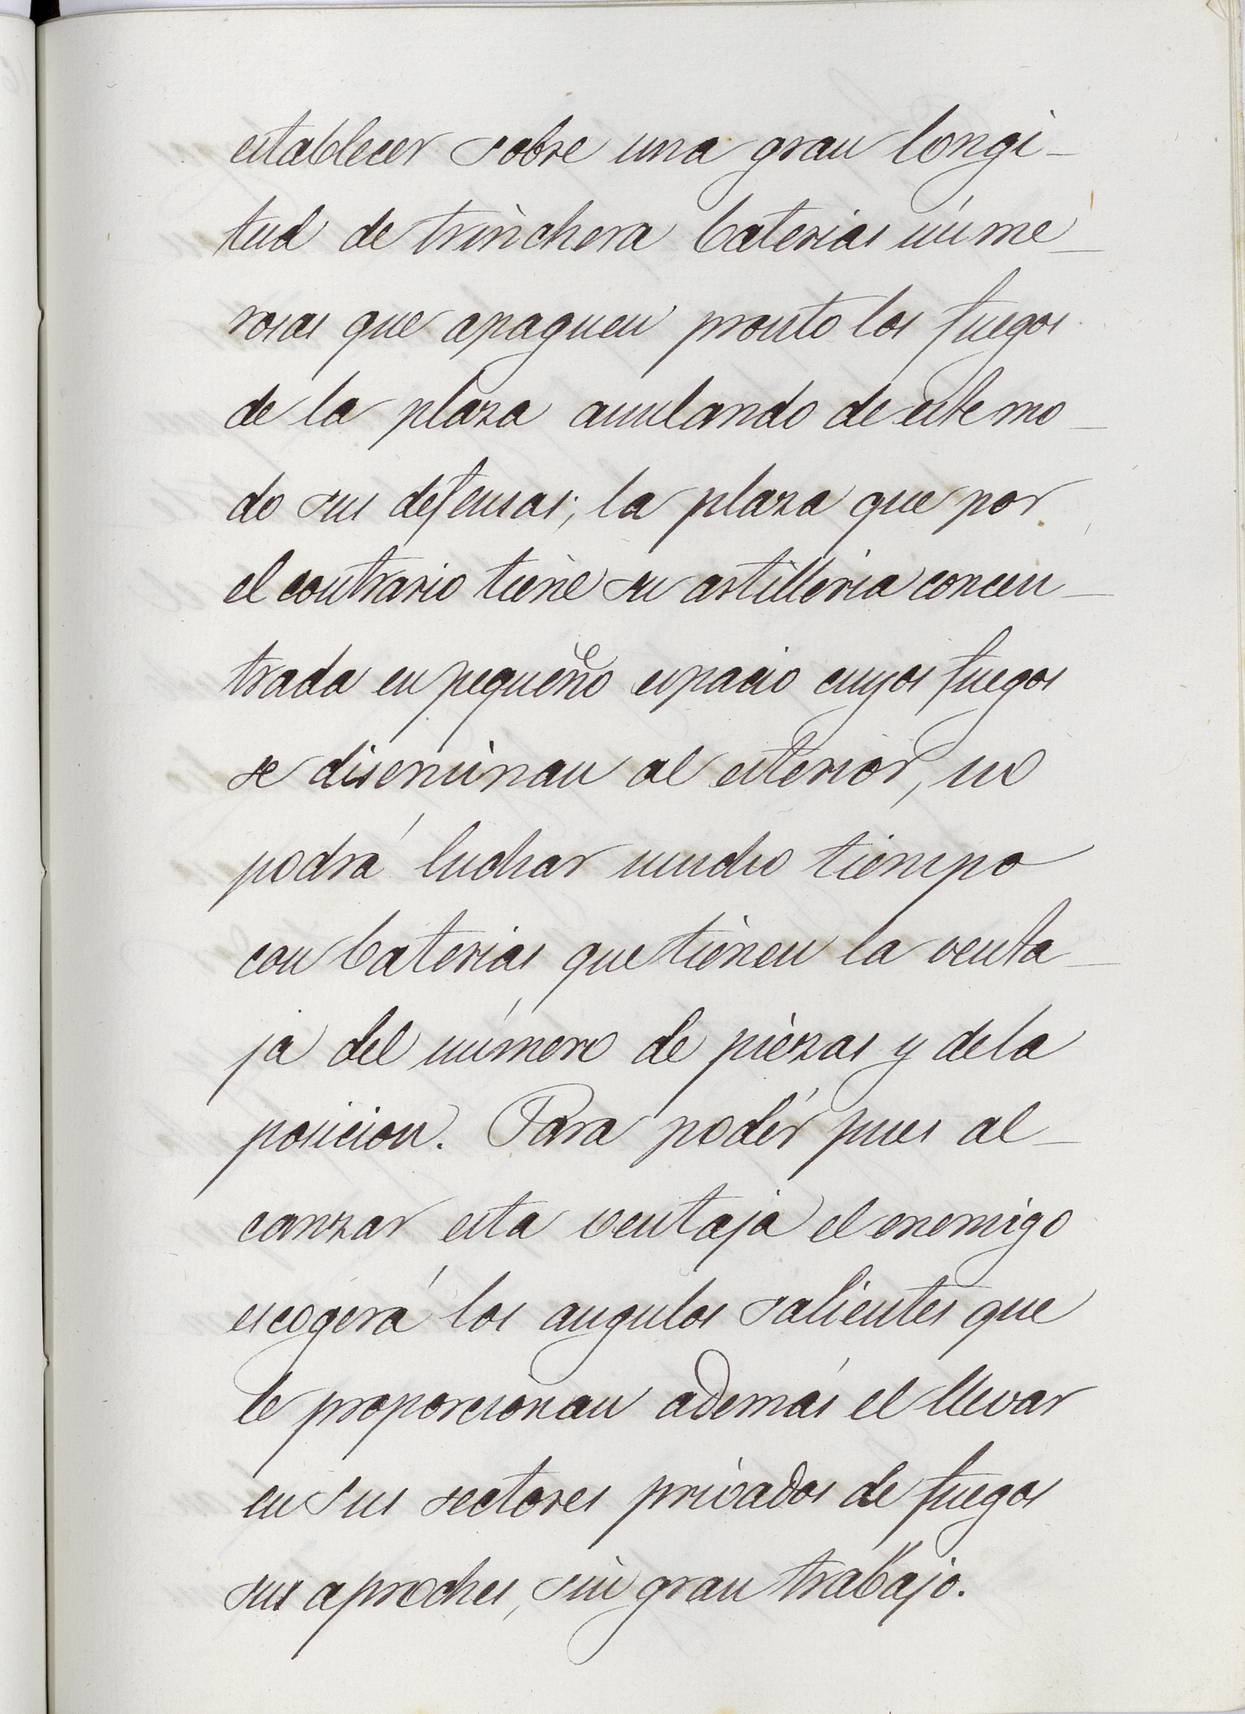 establecer sobre una gran longi-
tud de trinchera baterias núme-
rosas que apaguen pronto los fuegos
de la plaza anulando de este mo-
do sus defensas; la plaza que por
el contrario tiene su artilleria concen-
trada en pequeño espacio cuyos fuegos
se diseminan al esterior, no
podrá luchar mucho tiempo
con baterias que tienen la venta-
ja del número de piezas y de la
posicion. Para podér pues al-
canzar esta ventaja el enemigo
escogerá los angulos salientes que
le proporcionan además el llevar
en sus sectores privados de fuegos
sus aproches, sin gran trabajo.